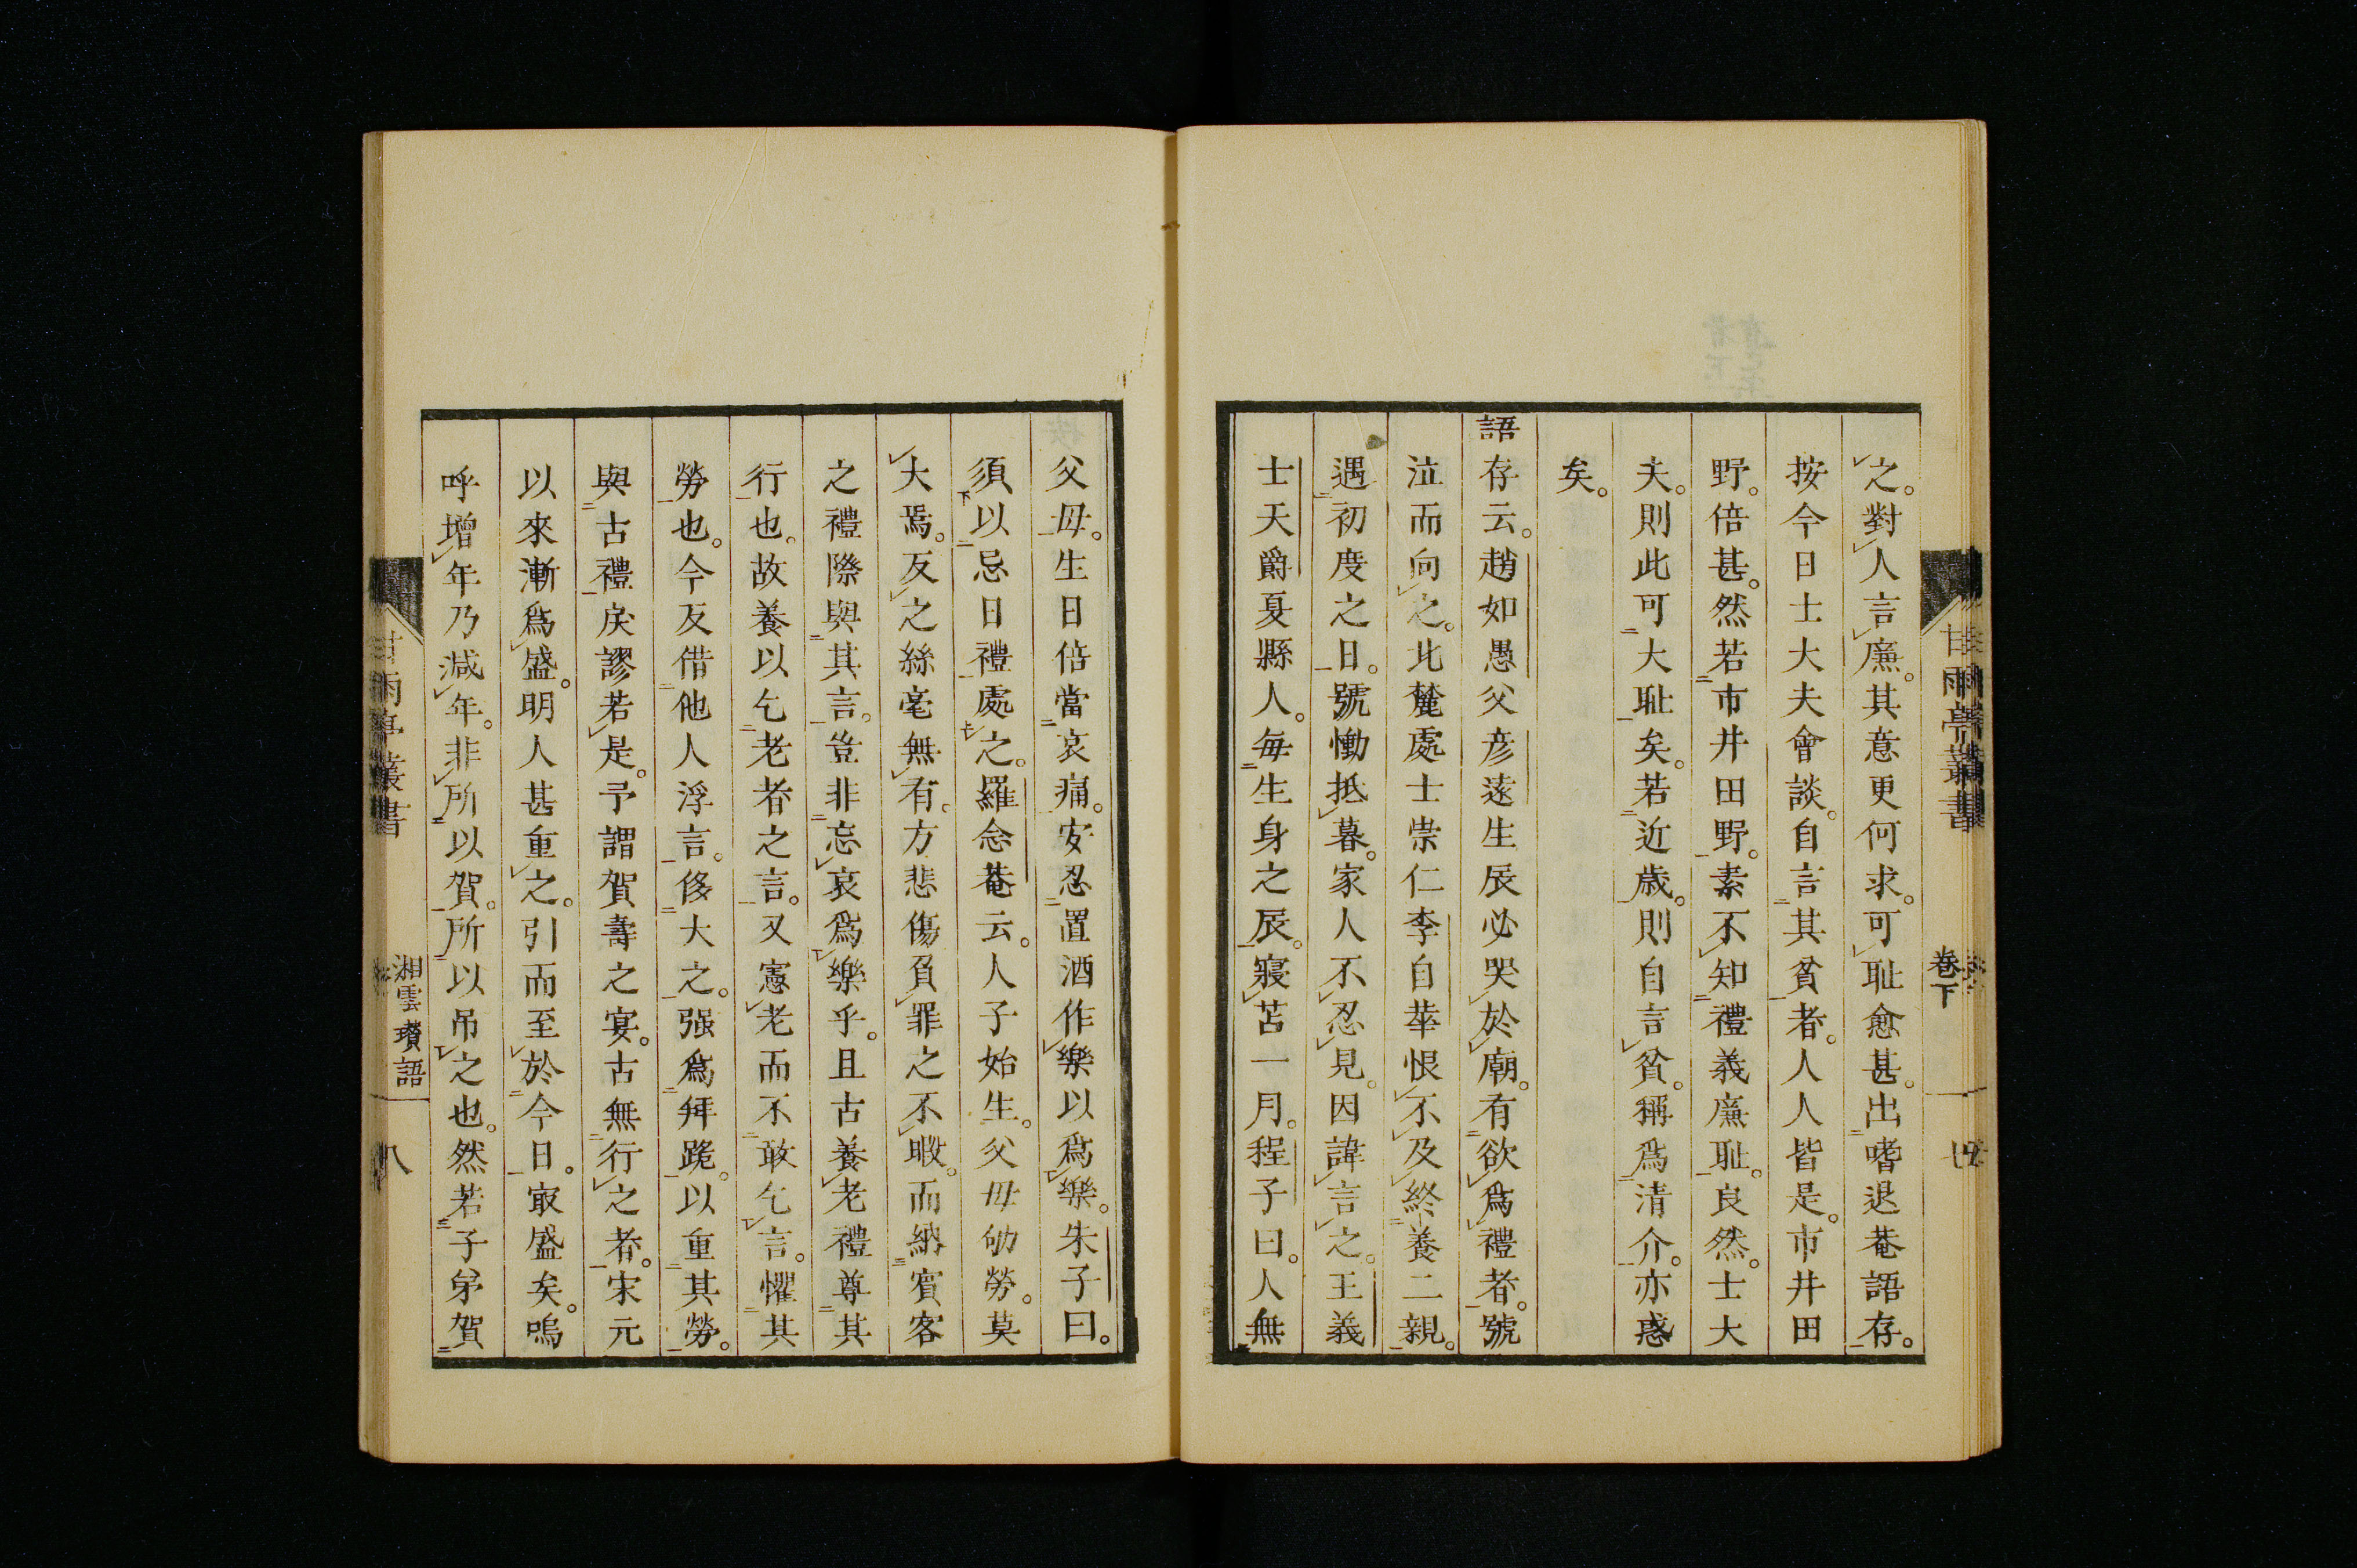 之。對人言廉。其意更何求。可耻愈甚。出嗜退菴語存。
按今日士大夫會談。自言其貧者。人人皆是。市井田
野。倍甚。然若市井田野。素不知禮義廉耻。良然。士大
夫。則此可大耻矣。若近歳。則自言貧。稱爲清介。亦惑
矣。
語存云。趙如愚父彦遠生辰必哭於廟。有欲爲禮者。號
泣而向之。北麓處士崇仁李自華恨不及終養二親。
遇初度之日。號慟抵暮。家人不忍見。因諱言之。王義
士天爵夏縣人。毎生身之辰。寢苫一月。程子曰。人無
父母。生日倍當哀痛。安忍置酒作樂以爲樂。朱子曰。
須以忌日禮處之。羅念菴云。人子始生。父母劬勞。莫
大焉。反之絲毫無有。方悲傷負罪之不暇。而納賓客
之禮際與其言。豈非忘哀爲樂乎。且古養老禮尊其
行也。故養以乞老者之言。又憲老而不敢乞言。懼其
勞也。今反借他人浮言。侈大之。强爲拜跪。以重其勞。
與古禮戾謬若是。予謂賀壽之宴。古無行之者。宋元
以來漸爲盛。明人甚重之。引而至於今日。㝡盛矣。嗚
呼增年乃減年。非所以賀。所以吊之也。然若子弟賀
甘雨亭叢書
卷下
七
甘雨亭叢書
湘雲瓉語
八